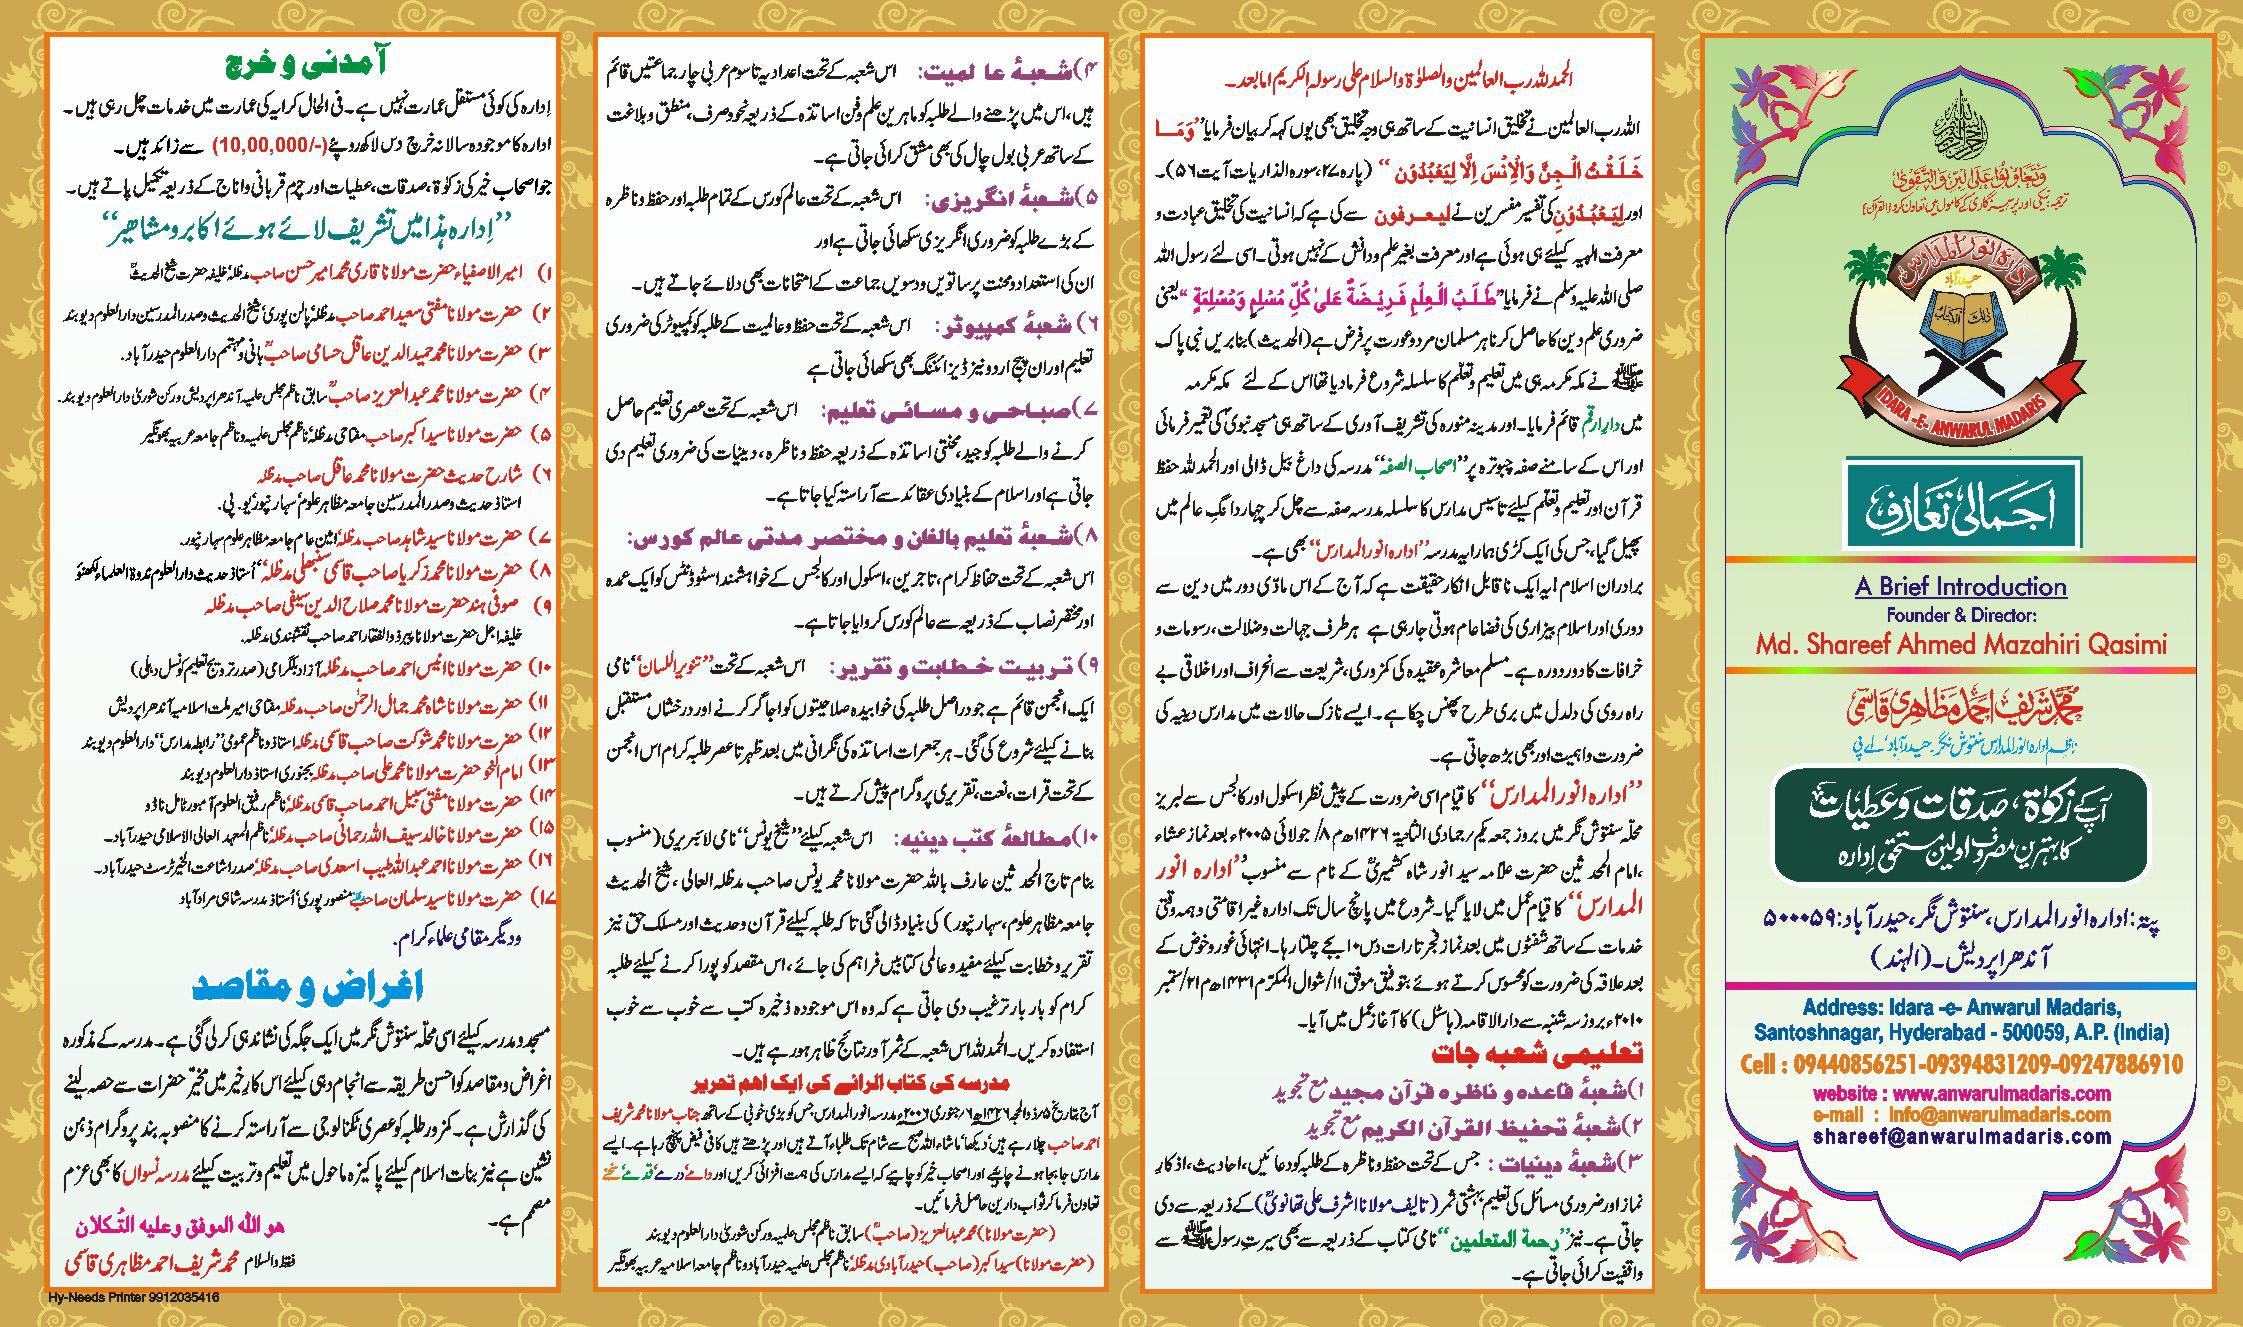 وَتَعَاوَنُوا عَلَى الْبِرِّ وَالتَّقْوٰی
ترجمہ: نیکی اور پرہیزگاری کے کاموں میں تعاون کرو (القرآن)
ادارہ انوارالمدارس
حیدرآباد
ذلک الکتاب
IDARA -E- ANWARUL MADARIS
اجمالی تعارف
A Brief Introduction
Founder & Director:
Md. Shareef Ahmed Mazahiri Qasimi
محمد شریف احمد مظاہری قاسمی
ناظم ادارہ انورالمدارس سنتوش نگر۔ حیدرآباد، اے پی
آپکے زکوٰۃ، صدقات و عطیات
کا بہترین مصرف اولین مستحق اِدارہ
پتہ: ادارہ انورالمدارس، سنتوش نگر، حیدرآباد: ۵۰۰۰۵۹
آندھراپردیش۔ (الہند)
Address: Idara -e- Anwarul Madaris,
Santoshnagar, Hyderabad - 500059, A.P. (India)
Cell : 09440856251-09394831209-09247886910
website : www.anwarulmadaris.com
e-mail : info@anwarulmadaris.com
shareef@anwarulmadaris.com
الحمدللہ رب العالمین والصلوٰۃ والسلام علی رسولہ الکریم امابعد۔
اللہ رب العالمین نے تخلیق انسانیت کے ساتھ ہی وجہ تخلیق بھی یوں کہہ کر بیان فرمایا ”وَمَا
خَلَقْتُ الْجِنَّ وَالْاِنْسَ اِلَّا لِیَعْبُدُوْن“ (پارہ ۲۷، سورہ الذاریات آیت ۵۶)۔
اور لِیَعْبُدُوْنِ کی تفسیر مفسرین نے لیعرفون سے کی ہے کہ انسانیت کی تخلیق عبادت و
معرفت الٰہیہ کیلئے ہی ہوئی ہے اور معرفت بغیر علم و دانش کے نہیں ہوتی۔ اسی لئے رسول اللہ
صلی اللہ علیہ وسلم نے فرمایا ”طَلَبُ الْعِلْمِ فَرِیْضَۃٌ عَلیٰ کُلِّ مُسْلِمٍ وَمُسْلِمَۃٍ“ یعنی
ضروری علم دین کا حاصل کرنا ہر مسلمان مرد و عورت پر فرض ہے (الحدیث) بنابریں نبی پاک
ﷺ نے مکہ مکرمہ ہی میں تعلیم و تعلّم کا سلسلہ شروع فرمادیا تھا اس کے لئے مکہ مکرمہ
میں دارارقم قائم فرمایا۔ اور مدینہ منورہ کی تشریف آوری کے ساتھ ہی مسجد نبویؐ کی تعمیر فرمائی
اور اس کے سامنے صفہ چبوترہ پر ”اصحاب الصفہ“ مدرسہ کی داغ بیل ڈالی اور الحمدللہ حفظ
قرآن اور تعلیم و تعلّم کیلئے تاسیس مدارس کا سلسلہ مدرسہ صفہ سے چل کر چہار دانگِ عالم میں
پھیل گیا، جس کی ایک کڑی ہمارا یہ مدرسہ ”ادارہ انورالمدارس“ بھی ہے۔
برادران اسلام! یہ ایک ناقابل انکار حقیقت ہے کہ آج کے اس مادّی دور میں دین سے
دوری اور اسلام بیزاری کی فضا عام ہوتی جارہی ہے ہر طرف جہالت و ضلالت، رسومات و
خرافات کا دور دورہ ہے۔ مسلم معاشرہ عقیدہ کی کمزوری، شریعت سے انحراف اور اخلاقی بے
راہ روی کی دلدل میں بری طرح پھنس چکا ہے۔ ایسے نازک حالات میں مدارس دینیہ کی
ضرورت و اہمیت اور بھی بڑھ جاتی ہے۔
”ادارہ انورالمدارس“ کا قیام اسی ضرورت کے پیش نظر اسکول اور کالجس سے لبریز
محلّہ سنتوش نگر میں بروز جمعہ یکم؍جمادی الثانیۃ ۱۴۲۶ھ م ۸؍جولائی ۲۰۰۵ء بعد نماز عشاء
،امام المحدثین حضرت علامہ سید انور شاہ کشمیریؒ کے نام سے منسوب ”ادارہ انور
المدارس“ کا قیام عمل میں لایا گیا۔ شروع میں پانچ سال تک ادارہ غیر اقامتی و ہمہ وقتی
خدمات کے ساتھ شفٹوں میں بعد نماز فجر تا رات دس ۱۰ بجے چلتا رہا۔ انتہائی غور و خوض کے
بعد علاقہ کی ضرورت کو محسوس کرتے ہوئے بتوفیق موفق ۱۱؍شوال المکرّم ۱۴۳۱ھ م ۲۱؍ستمبر
۲۰۱۰ء بروز سہ شنبہ سے دارالاقامہ (ہاسٹل) کا آغاز عمل میں آیا۔
تعلیمی شعبہ جات
۱) شعبۂ قاعدہ و ناظرہ قرآن مجید مع تجوید
۲) شعبۂ تحفیظ القرآن الکریم مع تجوید
۳) شعبۂ دینیات: جس کے تحت حفظ و ناظرہ کے طلبہ کو دعائیں، احادیث، اذکار
نماز اور ضروری مسائل کی تعلیم بہشتی ثمر (تالیف مولانا اشرف علی تھانویؒ) کے ذریعہ سے دی
جاتی ہے۔ نیز ”رحمۃ المتعلمین“ نامی کتاب کے ذریعہ سے بھی سیرت رسول ﷺ سے
واقفیت کرائی جاتی ہے۔
۴) شعبۂ عا لمیت: اس شعبہ کے تحت اعدادیہ تا سوم عربی چار جماعتیں قائم
ہیں، اس میں پڑھنے والے طلبہ کو ماہرین علم و فن اساتذہ کے ذریعہ نحو و صرف، منطق و بلاغت
کے ساتھ عربی بول چال کی بھی مشق کرائی جاتی ہے۔
۵) شعبۂ انگریزی: اس شعبہ کے تحت عالم کورس کے تمام طلبہ اور حفظ و ناظرہ
کے بڑے طلبہ کو ضروری انگریزی سکھائی جاتی ہے اور
ان کی استعداد و محنت پر ساتویں و دسویں جماعت کے امتحانات بھی دلائے جاتے ہیں۔
۶) شعبۂ کمپیوٹر: اس شعبہ کے تحت حفظ و عالمیت کے طلبہ کو کمپیوٹر کی ضروری
تعلیم اور ان پیج اردو نیز ڈیزائننگ بھی سکھائی جاتی ہے
۷) صباحی و مسائی تعلیم: اس شعبہ کے تحت عصری تعلیم حاصل
کرنے والے طلبہ کو جید، محنتی اساتذہ کے ذریعہ حفظ و ناظرہ، دینیات کی ضروری تعلیم دی
جاتی ہے اور اسلام کے بنیادی عقائد سے آراستہ کیا جاتا ہے۔
۸) شعبۂ تعلیم بالغان و مختصر مدتی عالم کورس:
اس شعبہ کے تحت حفاظ کرام، تاجرین، اسکول اور کالجس کے خواہشمند اسٹوڈنٹس کو ایک عمدہ
اور مختصر نصاب کے ذریعہ سے عالم کورس کروایا جاتا ہے۔
۹) تربیت خطابت و تقریر: اس شعبہ کے تحت ”تنویراللسان“ نامی
ایک انجمن قائم ہے جو دراصل طلبہ کی خوابیدہ صلاحیتوں کو اجاگر کرنے اور درخشاں مستقبل
بنانے کیلئے شروع کی گئی۔ ہر جمعرات اساتذہ کی نگرانی میں بعد ظہر تا عصر طلبہ کرام اس انجمن
کے تحت قرات، نعت، تقریری پروگرام پیش کرتے ہیں۔
۱۰) مطالعۂ کتب دینیہ: اس شعبہ کیلئے ”شیخ یونس“ نامی لائبریری (منسوب
بنام تاج المحدثین عارف باللہ حضرت مولانا محمد یونس صاحب مدظلہ العالی، شیخ الحدیث
جامعہ مظاہر علوم، سہارنپور) کی بنیاد ڈالی گئی تاکہ طلبہ کیلئے قرآن و حدیث اور مسلک حق نیز
تقریر و خطابت کیلئے مفید و عالمی کتابیں فراہم کی جائے، اس مقصد کو پورا کرنے کیلئے طلبہ
کرام کو بار بار ترغیب دی جاتی ہے کہ وہ اس موجودہ ذخیرہ کتب سے خوب سے خوب
استفادہ کریں۔ الحمدللہ اس شعبہ کے ثمر آور نتائج ظاہر ہورہے ہیں۔
مدرسہ کی کتاب الرائے کی ایک اہم تحریر
آج بتاریخ ۵؍ذوالحجہ ۱۴۲۶ھ ۶؍جنوری ۲۰۰۶ء مدرسہ انورالمدارس جس کو بڑی خوبی کے ساتھ جناب مولانا محمد شریف
احمد صاحب چلا رہے ہیں، دیکھا، ماشاء اللہ صبح سے شام تک طلباء آتے ہیں اور پڑھتے ہیں کافی فیض پہنچ رہا ہے۔ ایسے
مدارس جابجا ہونے چاہیے اور اصحاب خیر کو چاہیے کہ ایسے مدارس کی ہمت افزائی کریں اور دامے درمے قدمے سخنے
تعاون فرما کر ثواب دارین حاصل فرمائیں۔
(حضرت مولانا) محمد عبدالعزیز (صاحبؒ) سابق ناظم مجلس علمیہ و رکن شوریٰ دارالعلوم دیوبند
(حضرت مولانا) سید اکبر (صاحب) حیدرآبادی مدظلہٗ ناظم مجلس علمیہ حیدرآباد و ناظم جامعہ اسلامیہ عربیہ بھونگیر
آمدنی و خرچ
اِدارہ کی کوئی مستقل عمارت نہیں ہے۔ فی الحال کرایہ کی عمارت میں خدمات چل رہی ہیں۔
ادارہ کا موجودہ سالانہ خرچ دس لاکھ روپئے (10,00,000/-) سے زائد ہیں۔
جو اصحاب خیر کی زکوٰۃ، صدقات، عطیات اور چرم قربانی و اناج کے ذریعہ تکمیل پاتے ہیں۔
”اِدارہ ہذا میں تشریف لائے ہوئے اکابر و مشاھیر“
۱) امیر الاصفیاء حضرت مولانا قاری محمد امیر حسن صاحب مدظلہٗ خلیفہ حضرت شیخ الحدیثؒ
۲) حضرت مولانا مفتی سعید احمد صاحب مدظلہٗ پالن پوری شیخ الحدیث و صدر المدرسین دارالعلوم دیوبند
۳) حضرت مولانا محمد حمید الدین عاقل حسامی صاحبؒ بانی و مہتمم دارالعلوم حیدرآباد.
۴) حضرت مولانا محمد عبدالعزیز صاحبؒ سابق ناظم مجلس علمیہ آندھراپردیش و رکن شوریٰ دارالعلوم دیوبند.
۵) حضرت مولانا سید اکبر صاحب مفتاحی مدظلہٗ ناظم مجلس علمیہ و ناظم جامعہ عربیہ بھونگیر
۶) شارح حدیث حضرت مولانا محمد عاقل صاحب مدظلہ
استاذ حدیث و صدر المدرسین جامعہ مظاہر علوم سہارنپور یو. پی.
۷) حضرت مولانا سید شاہد صاحب مدظلہٗ امین عام جامعہ مظاہر علوم سہارنپور.
۸) حضرت مولانا محمد زکریا صاحب قاسمی سنبھلی مدظلہٗ اُستاذ حدیث دارالعلوم ندوۃ العلماء لکھنؤ
۹) صوفی ہند حضرت مولانا محمد صلاح الدین سیفی صاحب مدظلہ
خلیفہ اجل حضرت مولانا پیر ذوالفقار احمد صاحب نقشبندی مدظلہ.
۱۰) حضرت مولانا انیس احمد صاحب مدظلہ آزاد بلگرامی (صدر ترویج تعلیم کونسل دہلی)
۱۱) حضرت مولانا شاہ محمد جمال الرحمٰن صاحب مدظلہ مفتاحی امیر ملت اسلامیہ آندھراپردیش
۱۲) حضرت مولانا محمد شوکت صاحب قاسمی مدظلہٗ استاذ و ناظم عمومی ”رابطہ مدارس“ دارالعلوم دیوبند
۱۳) امام النحو حضرت مولانا محمد علی صاحب مدظلہٗ بجنوری استاذ دارالعلوم دیوبند
۱۴) حضرت مولانا مفتی سبیل احمد صاحب قاسمی مدظلہٗ ناظم رفیق العلوم آمبور ٹامل ناڈو
۱۵) حضرت مولانا خالد سیف اللہ رحمانی صاحب مدظلہٗ ناظم المعہد العالی الاسلامی حیدرآباد۔
۱۶) حضرت مولانا احمد عبداللہ طیب اسعدی صاحب مدظلہٗ صدر اشاعت الخیر ٹرسٹ حیدرآباد۔
۱۷) حضرت مولانا سید سلمان صاحب منصور پوری اُستاذ مدرسہ شاہی مرادآباد
و دیگر مقامی علماء کرام.
اغراض و مقاصد
مسجد و مدرسہ کیلئے اسی محلّہ سنتوش نگر میں ایک جگہ کی نشاندہی کرلی گئی ہے۔ مدرسہ کے مذکورہ
اغراض و مقاصد کو احسن طریقہ سے انجام دہی کیلئے اس کارِ خیر میں مخیّر حضرات سے حصہ لینے
کی گذارش ہے۔ کمزور طلبہ کو عصری ٹکنالوجی سے آراستہ کرنے کا منصوبہ بند پروگرام ذہن
نشین ہے نیز بنات اسلام کیلئے پاکیزہ ماحول میں تعلیم و تربیت کیلئے مدرسہ نسواں کا بھی عزم
مصمم ہے۔
ھو اللہ الموفق وعلیہ التُکلان
فقط والسلام محمد شریف احمد مظاہری قاسمی
Hy-Needs Printer 9912035416